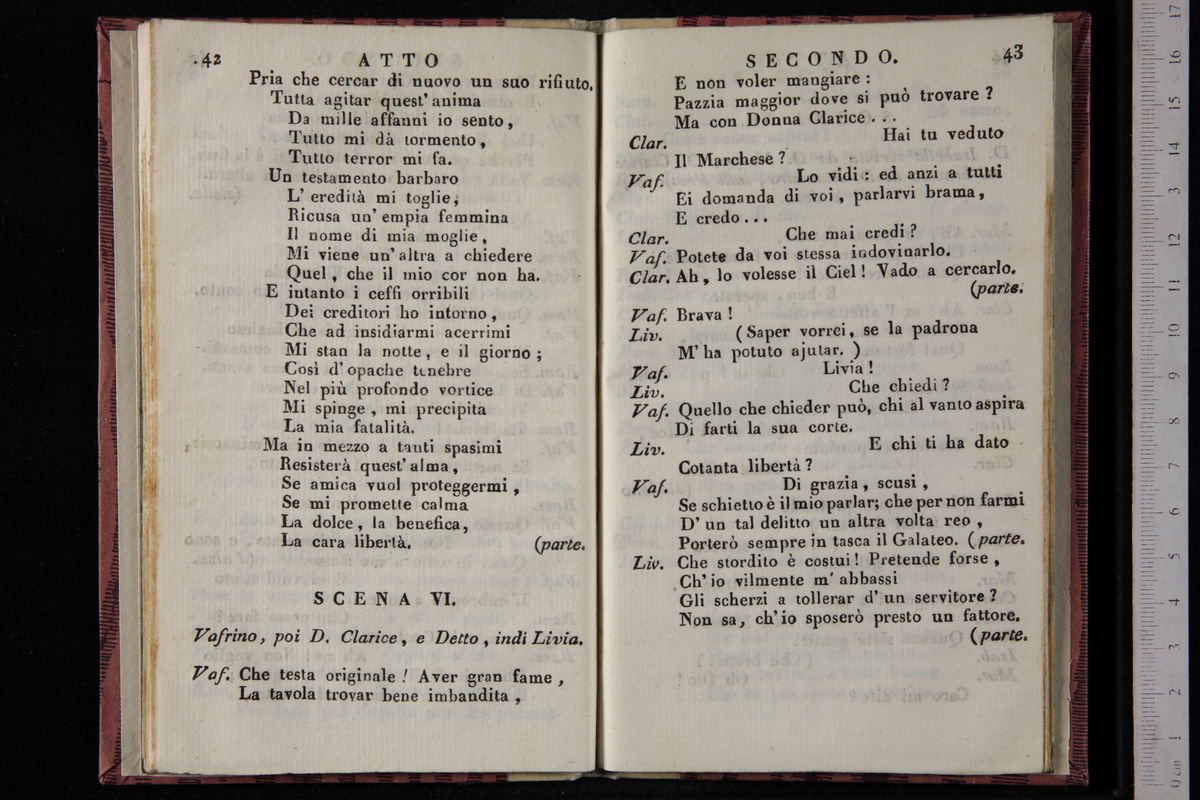 .42
ATTO
Pria che cercar di nuovo un suo rifiuto.
Tutta agitar quest' anima
Da mille affanni io sento,
Tutto mi dà tormento,
Tutto terror mi fa.
Un testamento barbaro
L' eredità mi toglie;
Ricusa un' empia femmina
Il nome di mia moglie,
Mi viene un' altra a chiedere
Quel, che il mio cor non ha.
E intanto i ceffi orribili
Dei creditori ho intorno,
Che ad insidiarmi acerrimi
Mi stan la notte, e il giorno;
Così d' opache tenebre
Nel più profondo vortice
Mi spinge, mi precipita
La mia fatalità.
Ma in mezzo a tanti spasimi
Resisterà quest' alma,
Se amica vuol proteggermi,
Se mi promette calma
La dolce, la benefica,
La cara libertà. (parte.
SCENA VI.
Vafrino, poi D. Clarice, e Detto, indi Livia.
Vaf. Che testa originale! Aver gran fame,
La tavola trovar bene imbandita,
SECONDO.
43
E non voler mangiare:
Pazzia maggior dove si può trovare?
Ma con Donna Clarice...
Clar. Hai tu veduto
Il Marchese?
Vaf. Lo vidi: ed anzi a tutti
Ei domanda di voi, parlarvi brama,
E credo...
Clar. Che mai credi?
Vaf. Potete da voi stessa indovinarlo.
Clar. Ah, lo volesse il Ciel! Vado a cercarlo.
(parte.
Vaf. Brava!
Liv. (Saper vorrei, se la padrona
M' ha potuto ajutar.)
Vaf. Livia!
Liv. Che chiedi?
Vaf. Quello che chieder può, chi al vanto aspira
Di farti la sua corte.
Liv. E chi ti ha dato
Cotanta libertà?
Vaf. Di grazia, scusi,
Se schietto è il mio parlar; che per non farmi
D' un tal delitto un altra volta reo,
Porterò sempre in tasca il Galateo. (parte.
Liv. Che stordito è costui! Pretende forse,
Ch' io vilmente m' abbassi
Gli scherzi a tollerar d' un servitore?
Non sa, ch' io sposerò presto un fattore.
(parte.
0 cm 1 2 3 4 5 6 7 8 9 10 11 12 13 14 15 16 17